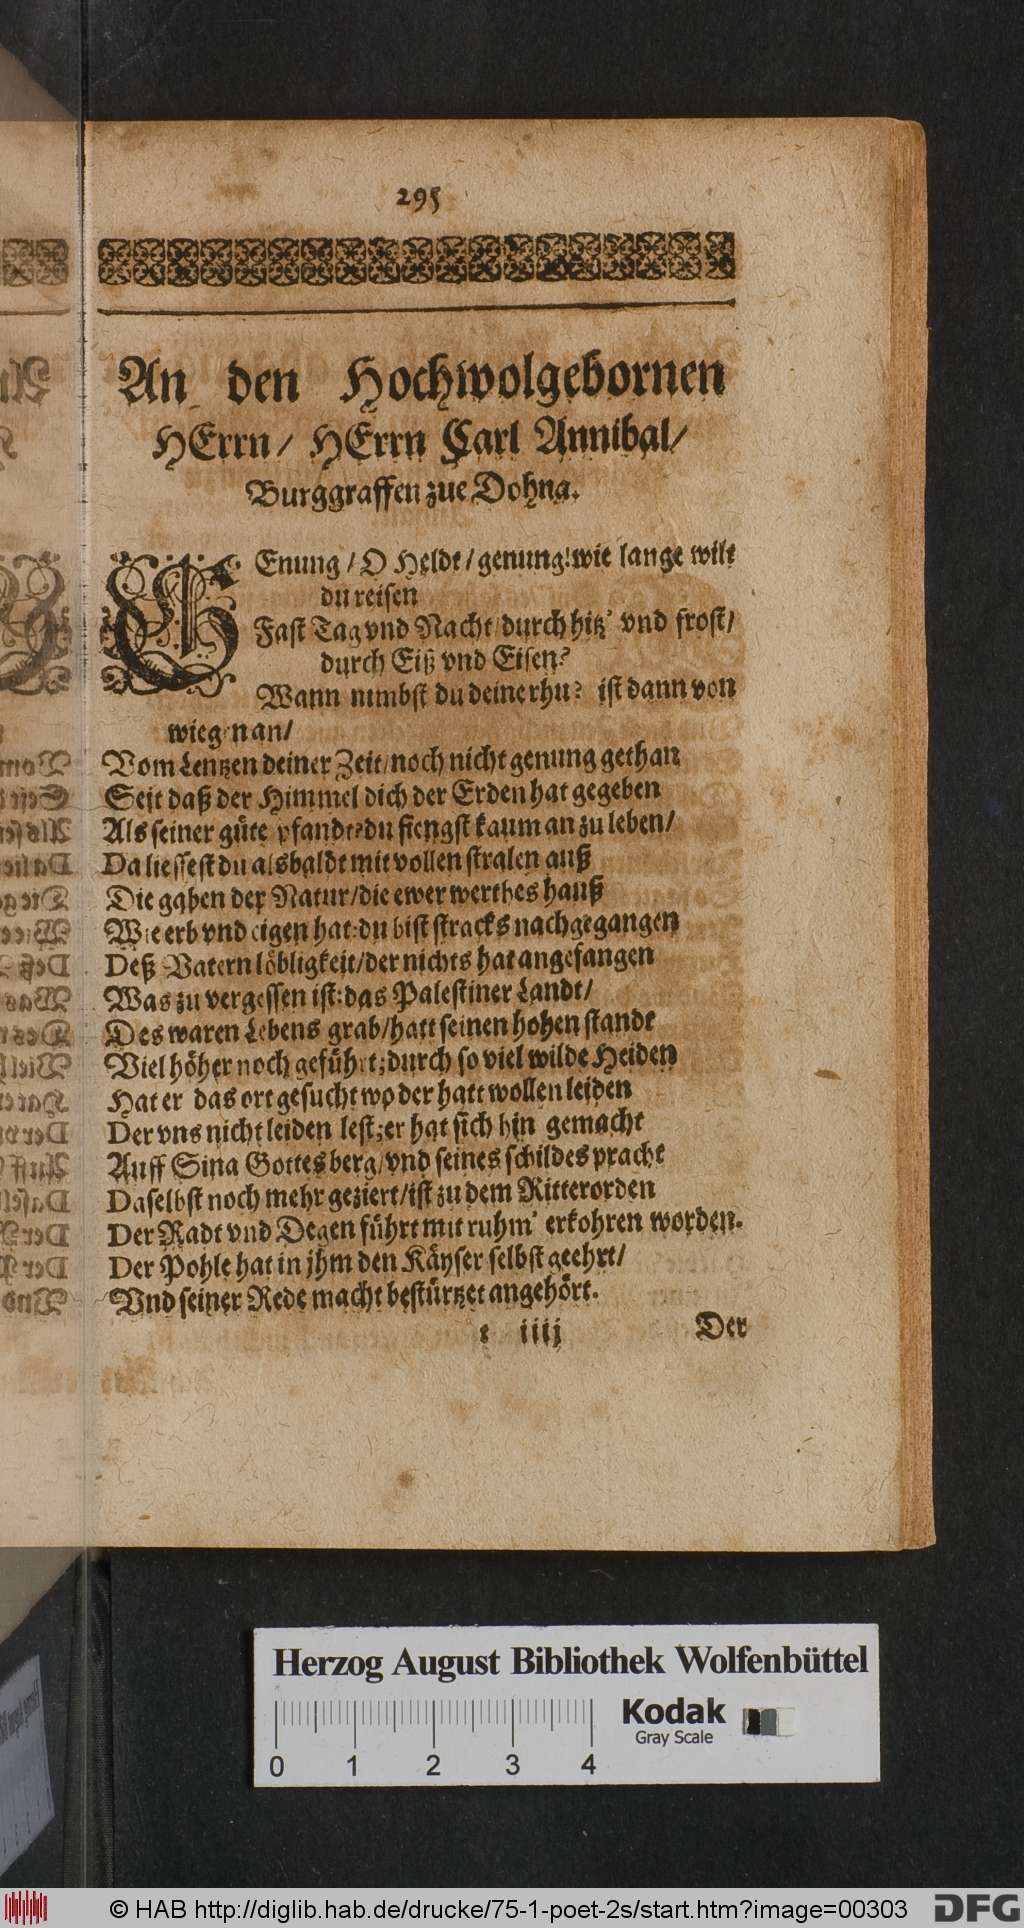 295
An den Hochwolgebornen
HErrn/ HErrn Carl Annibal/
Burggraffen zue Dohna.
GEnung/ O Heldt/ genung! wie lange wilt
du reisen
Fast Tag vnd Nacht/ durch hitz' vnd frost/
durch Eiß vnd Eisen?
Wann nimbst du deine rhu? ist dann von
wiegen an/
Vom Lentzen deiner Zeit/ noch nicht genung gethan
Seit daß der Himmel dich der Erden hat gegeben
Als seiner güte pfandt? du fiengst kaum an zu leben/
Da liessest du alsbaldt mit vollen stralen auß
Die gaben der Natur/ die ewer werthes hauß
Wie erb vnd eigen hat: du bist stracks nachgegangen
Deß Vatern löbligkeit/ der nichts hat angefangen
Was zu vergessen ist: das Palestiner Landt/
Des waren Lebens grab/ hatt seinen hohen standt
Viel höher noch geführt; durch so viel wilde Heiden
Hat er das ort gesucht wo der hatt wollen leiden
Der vns nicht leiden lest; er hat sich hin gemacht
Auff Sina Gottes berg/ vnd seines schildes pracht
Daselbst noch mehr geziert/ ist zu dem Ritterorden
Der Radt vnd Degen führt mit ruhm' erkohren worden.
Der Pohle hat in jhm den Käyser selbst geehrt/
Vnd seiner Rede macht bestürtzet angehört.
t iiij Der
Herzog August Bibliothek Wolfenbüttel
Kodak
Gray Scale
0 1 2 3 4
© HAB http://diglib.hab.de/drucke/75-1-poet-2s/start.htm?image=00303
DFG